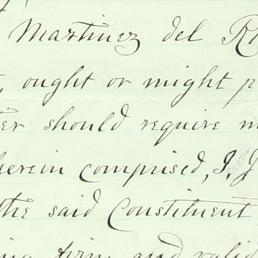 Martinez del R
, ought or might p
er should require m
herein comprised, I. J
the said Constituent
ing firm and valid